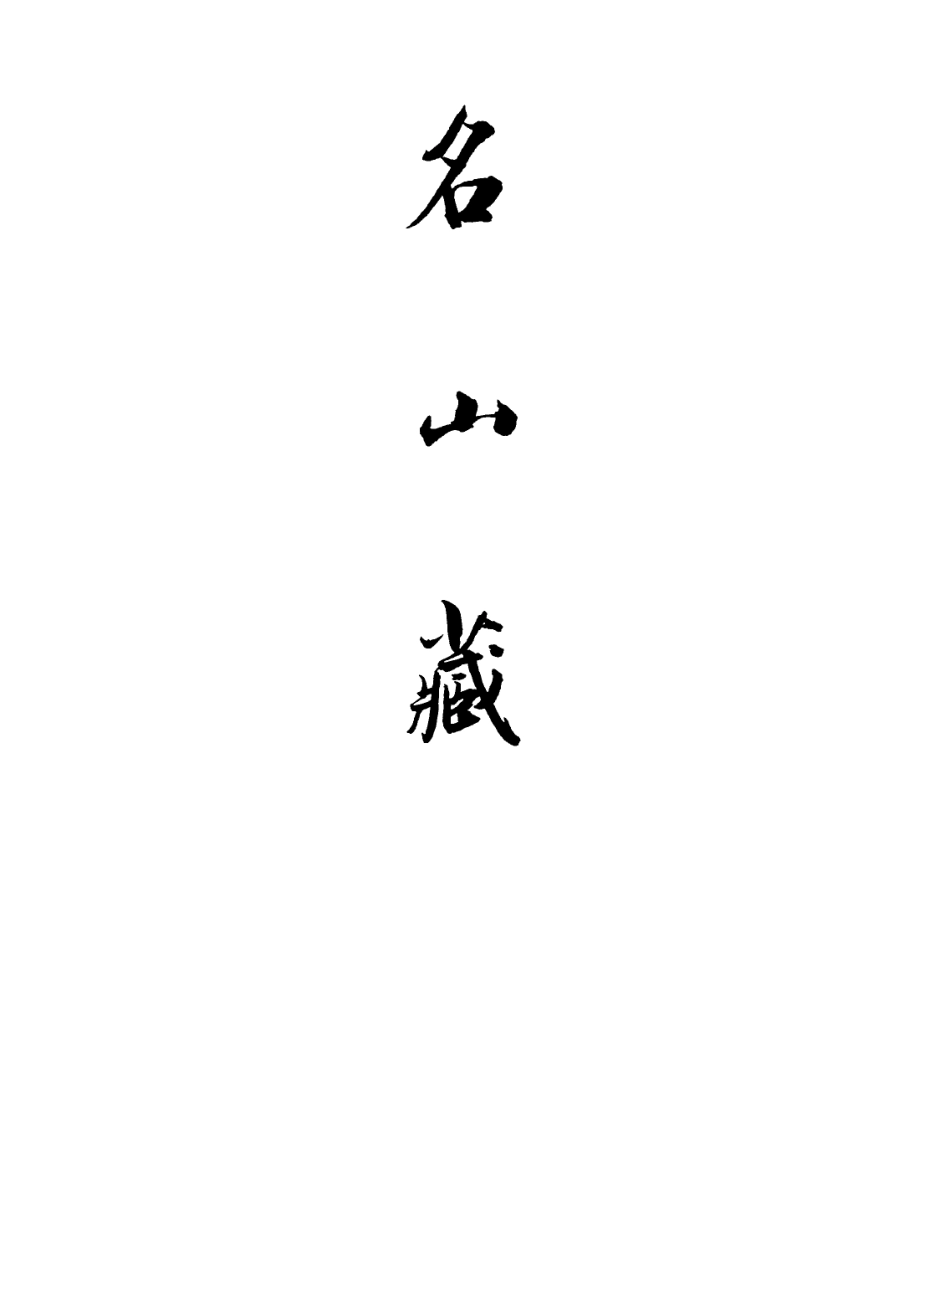 名山藏